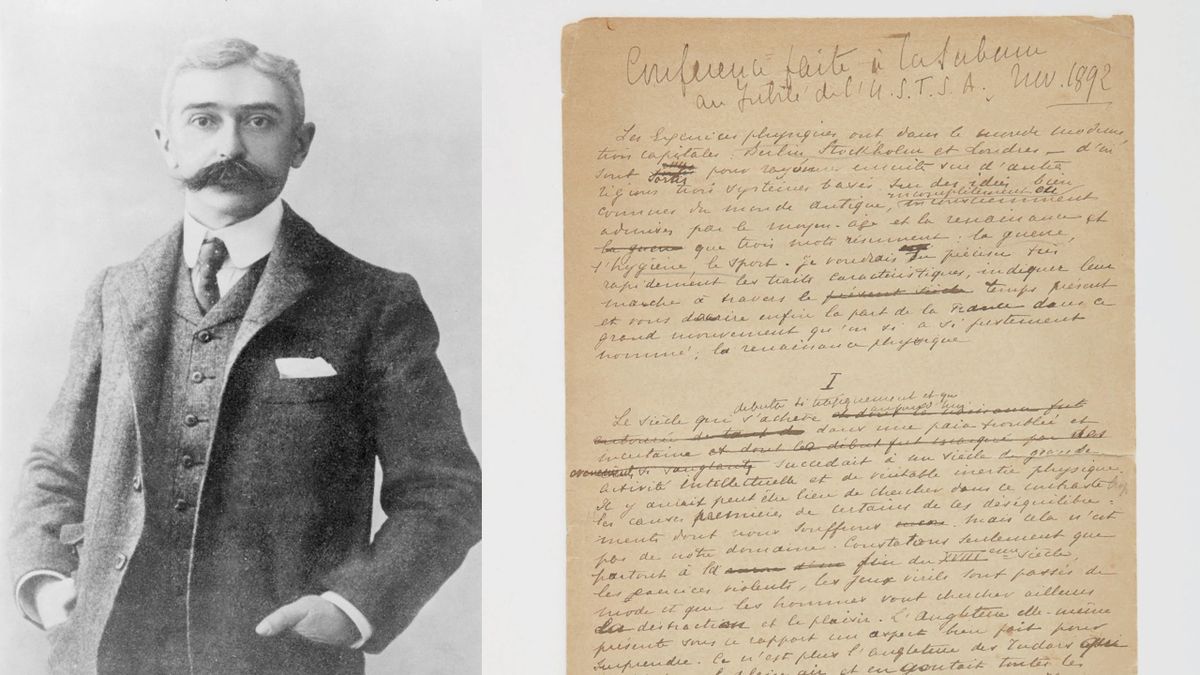 Conférence faite à la Sorbonne
au Jubilé de l'U.S.F.S.A. Nov. 1892
Les Exercices physiques ont dans le monde moderne
trois capitales : Berlin, Stockholm et Londres – d'où
sont sortis pour rayonner ensuite sur d'autres
régions trois systèmes basés sur des idées bien
connues du monde antique, incomplètement et inconsciemment
admises par le moyen-âge et la renaissance et
la guerre que trois mots résument : la guerre,
l'hygiène, le sport. Je voudrais en préciser très
rapidement les traits caractéristiques, indiquer leur
marche à travers le présent siècle temps présent
et vous dire enfin la part de la France dans ce
grand mouvement qu'on a si justement
nommé, la renaissance physique
I
débuta si tragiquement et qui
Le siècle qui s'achève
dans une paix troublée et
incertaine et dont le début fut marqué par des
évènements si sanglants succédait à un siècle de grande
activité intellectuelle et de véritable inertie physique.
Il y aurait peut être lieu de chercher dans ce contraste
les causes premières de certains de ces déséquilibre-
ments dont nous souffrons. Mais cela n'est
pas de notre domaine. Constatons seulement que
partout à la fin du XVIIIème siècle,
les exercices violents, les jeux virils sont passés de
mode et que les hommes vont chercher ailleurs
la distraction et le plaisir. L'Angleterre elle-même
présente sous ce rapport un aspect bien fait pour
surprendre. Ce n'est plus l'Angleterre des Tudors
plein air et en goûtait toutes les